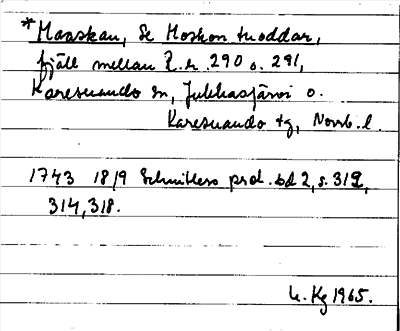 *Maaskan, Se Moskon tuoddar,
fjäll mellan R.r. 290 o. 291,
Karesuando sn, Jukkasjärvi o.
Karesuando tg, Norrb. l.
1743 18/9 Schnitlers prot. bd 2, s. 312,
314, 318.
Kg 1965.